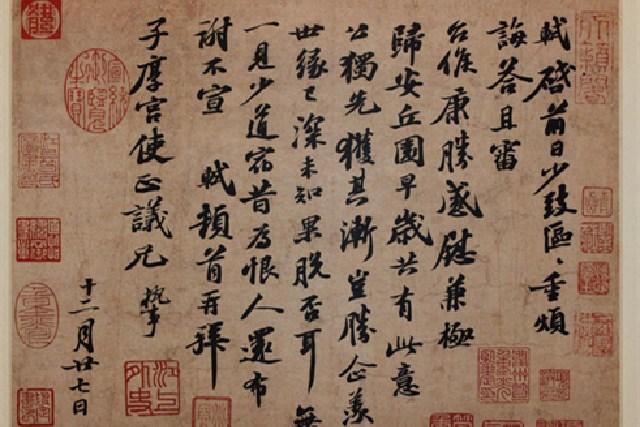 軾啓前日少致區〻重煩
誨答且審
台候康勝感慰兼極
歸安丘園早歲共有此意
公獨先獲其漸豈勝企羨
世緣已深未知果脫否耳無
一見少道宿昔為恨人還布
謝不宣 軾頓首再拜
子厚宮使正議兄 執事
十二月廿七日